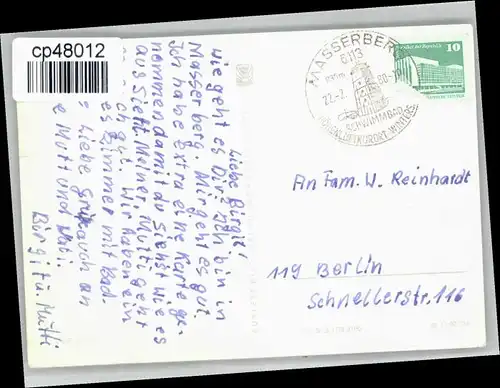 cp48012
MASSERBERG
6113
22.-7.
80-10
SCHWIMMBAD
10
An Fam. W. Reinhardt
119 Berlin
Schnellerstr. 116
Liebe Birgit!
Wie geht es Dir? Ich bin in
Masserberg. Mir geht es gut.
Ich habe Extra eine Karte ge-
nommen damit du Siehst wie es
aus Sieht. Meiner Mutti geht
ch gut. Wir haben ein
es Zimmer mit Bad.
Liebe Grüße auch an
e Mutti und
Birgit u. Mutti